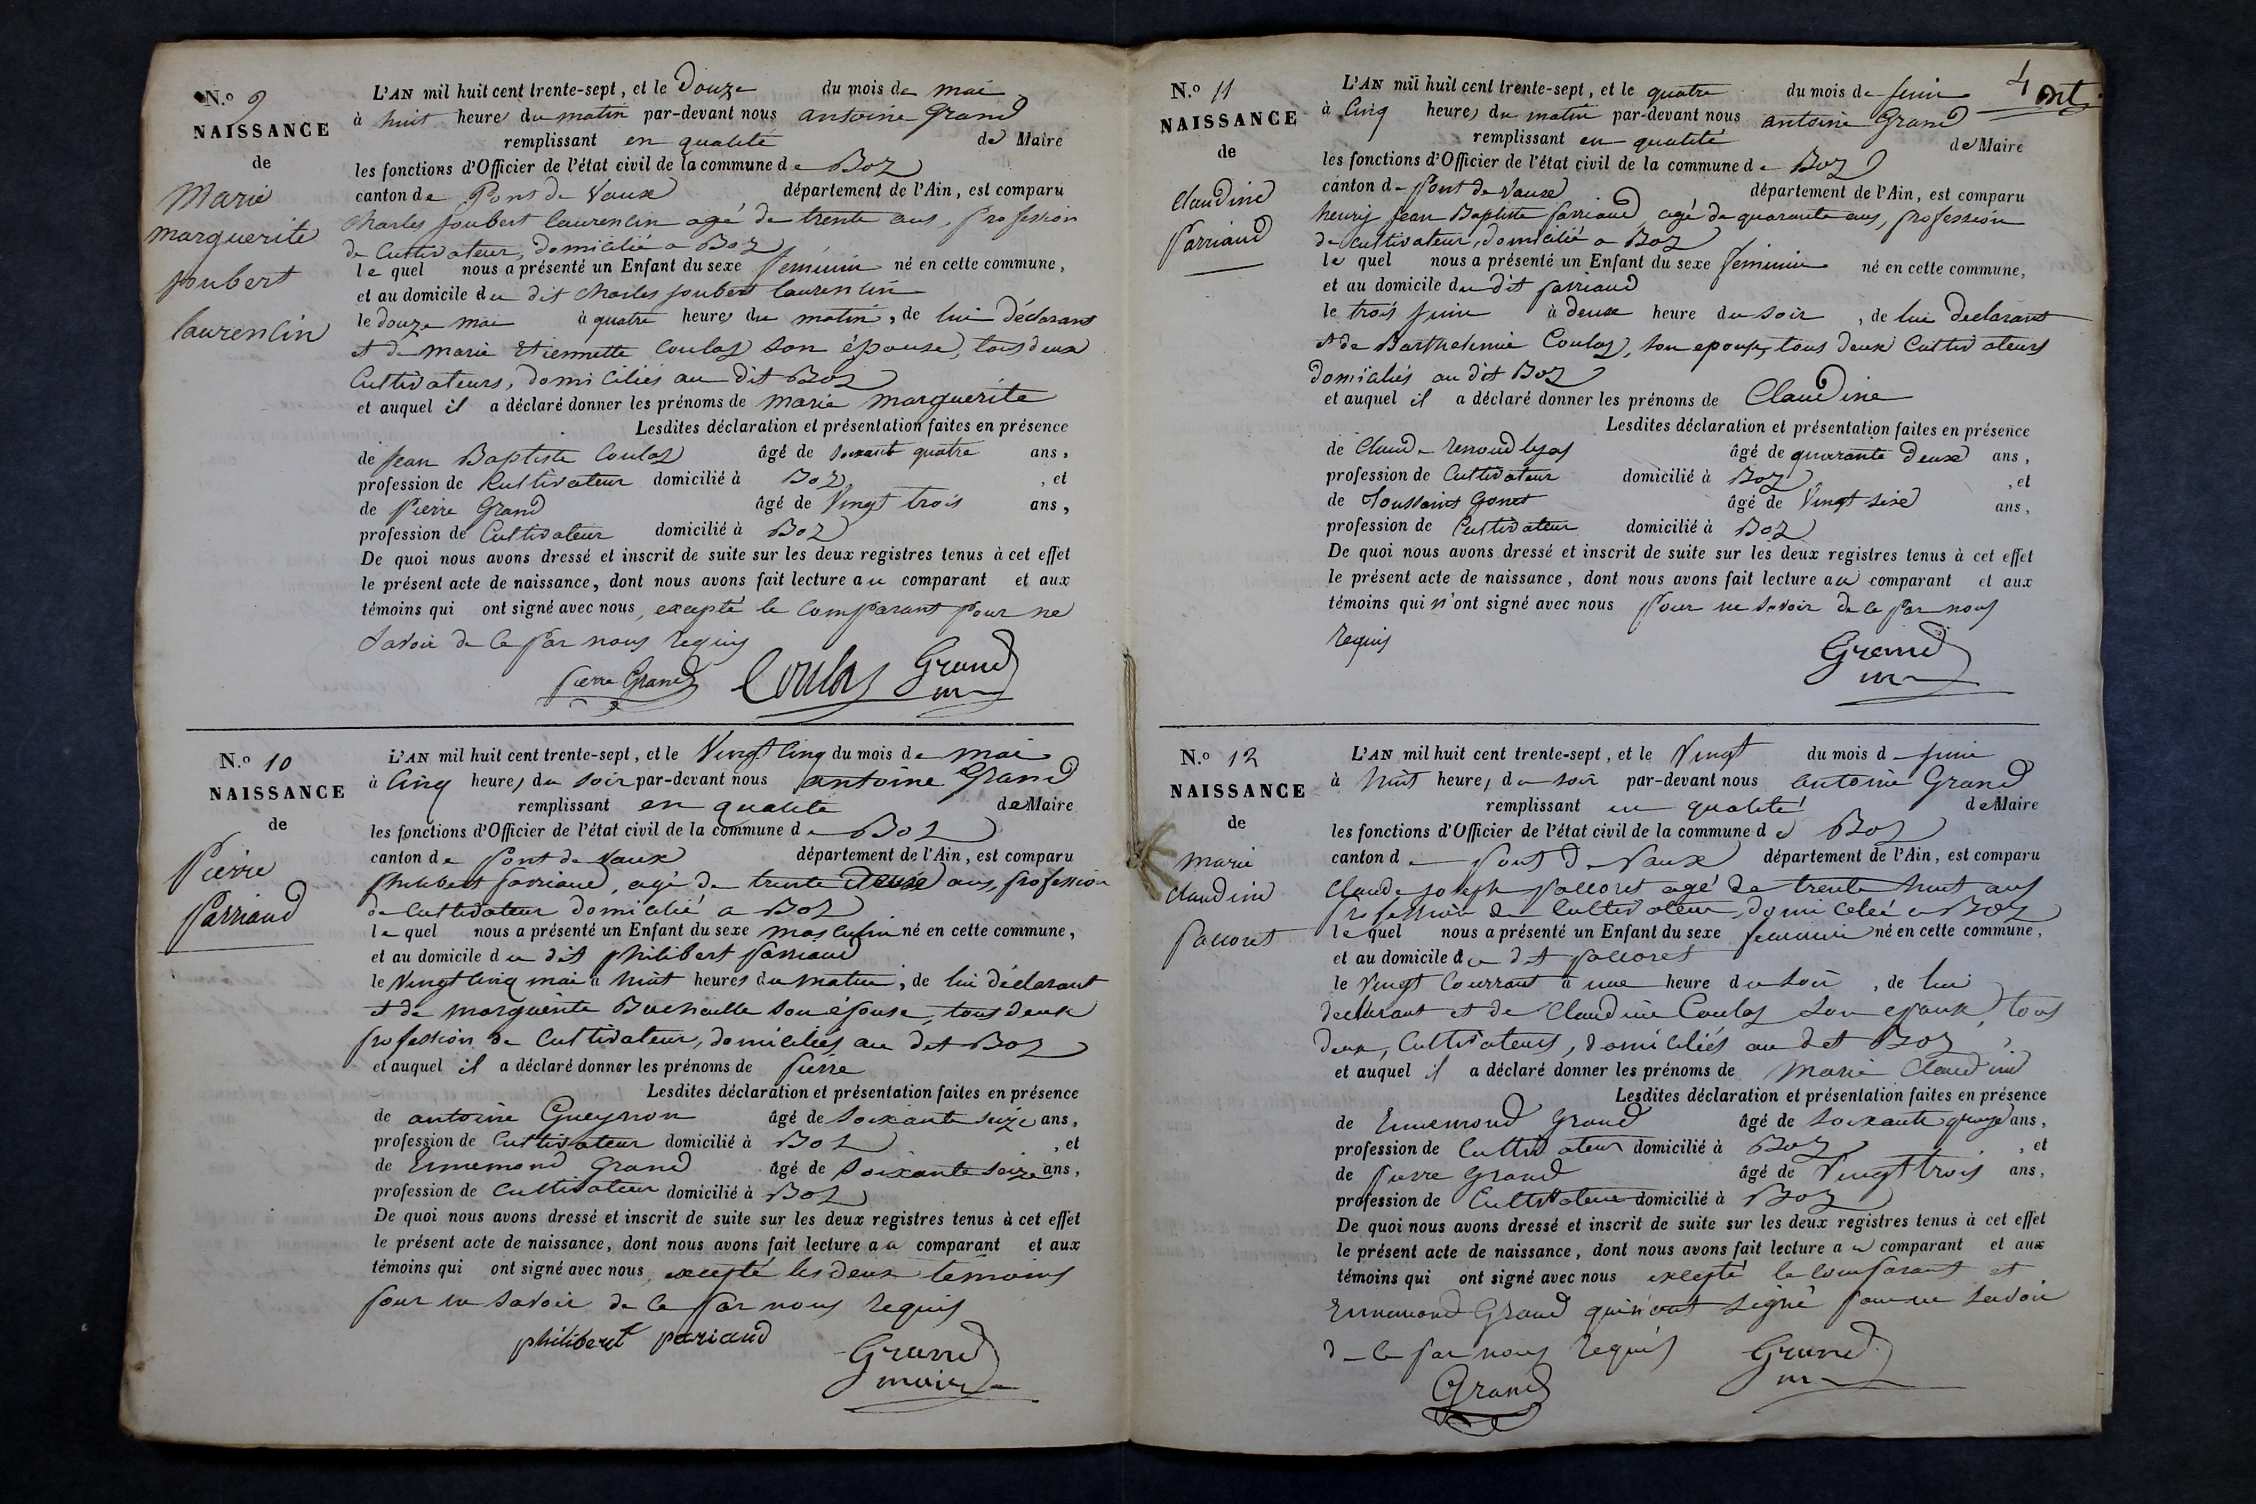 N.o 9
NAISSANCE
de
Marie
marguerite
joubert
laurencin
L'AN mil huit cent trente-sept, et le Douze du mois de mai
à huit heures du matin par-devant nous antoine Grand
remplissant en qualité de Maire
les fonctions d'Officier de l'état civil de la commune de Boz
canton de Pont de Vaux département de l'Ain, est comparu
charles joubert laurencin agé de trente ans, profession
de Cultivateur, domicilié a Boz
le quel nous a présenté un Enfant du sexe feminin né en cette commune,
et au domicile du dit charles joubert laurencin
le douze mai à quatre heures du matin, de lui déclarant
et de marie Etiennette Coulas son épouse, tous deux
Cultivateurs, domiciliés au dit Boz
et auquel il a déclaré donner les prénoms de marie marguerite
Lesdites déclaration et présentation faites en présence
de jean Baptiste Coulas âgé de soixante quatre ans,
profession de Cultivateur domicilié à Boz, et
de Pierre Grand âgé de Vingt trois ans,
profession de Cultivateur domicilié à Boz
De quoi nous avons dressé et inscrit de suite sur les deux registres tenus à cet effet
le présent acte de naissance, dont nous avons fait lecture au comparant et aux
témoins qui ont signé avec nous, excepté le comparant pour ne
savoir de ce par nous requis
pierre Grand Coulas Grand
m
N.o 10
NAISSANCE
de
Pierre
Parriaud
L'AN mil huit cent trente-sept, et le Vingt cinq du mois de mai
à Cinq heures du soir par-devant nous antoine Grand
remplissant en qualité de Maire
les fonctions d'Officier de l'état civil de la commune de Boz
canton de pont de vaux département de l'Ain, est comparu
philibert parriaud, agé de trente deuxe ans, profession
de Cultivateur domicilié a Boz
le quel nous a présenté un Enfant du sexe masculin né en cette commune,
et au domicile du dit philibert parriaud
le Vingt cinq mai à huit heures du matin, de lui déclarant
et de marguerite son épouse, tous deux
profession de Cultivateur, domiciliés au dit Boz
et auquel il a déclaré donner les prénoms de pierre
Lesdites déclaration et présentation faites en présence
de antoine Gueynon âgé de soixante seize ans,
profession de Cultivateur domicilié à Boz, et
de Ennemond Grand âgé de soixante seize ans,
profession de Cultivateur domicilié à Boz
De quoi nous avons dressé et inscrit de suite sur les deux registres tenus à cet effet
le présent acte de naissance, dont nous avons fait lecture au comparant et aux
témoins qui ont signé avec nous, excepté les deux temoins
pour ne savoir de ce par nous requis
philibert pariaud Grand
maire
4
N.o 11
NAISSANCE
de
claudine
Parriaud
L'AN mil huit cent trente-sept, et le quatre du mois de juin
à Cinq heures du matin par-devant nous antoine Grand
remplissant en qualité de Maire
les fonctions d'Officier de l'état civil de la commune de Boz
canton de pont de vaux département de l'Ain, est comparu
henry jean Baptiste parriaud, agé de quarante ans, profession
de cultivateur, domicilié a Boz
le quel nous a présenté un Enfant du sexe feminin né en cette commune,
et au domicile du dit parriaud
le trois juin à deux heure du soir, de lui declarant
et de Barthelemie Coulas, son epouse, tous deux Cultivateurs
domiciliés au dit Boz
et auquel il a déclaré donner les prénoms de Claudine
Lesdites déclaration et présentation faites en présence
de Claude âgé de quarante deux ans,
profession de Cultivateur domicilié à Boz, et
de Toussaint Gonet âgé de Vingt sixe ans,
profession de Cultivateur domicilié à Boz
De quoi nous avons dressé et inscrit de suite sur les deux registres tenus à cet effet
le présent acte de naissance, dont nous avons fait lecture au comparant et aux
témoins qui n'ont signé avec nous pour ne savoir de ce par nous
requis
Grand
m
N.o 12
NAISSANCE
de
marie
claudine
pacoret
L'AN mil huit cent trente-sept, et le Vingt du mois de juin
à huit heures du soir par-devant nous antoine Grand
remplissant en qualité de Maire
les fonctions d'Officier de l'état civil de la commune de Boz
canton de pont de vaux département de l'Ain, est comparu
claude joseph pacoret agé de trente huit ans
profession de Cultivateur, domicilié a Boz
le quel nous a présenté un Enfant du sexe feminin né en cette commune,
et au domicile du dit pacoret
le Vingt Courrant à une heure du soir, de lui
declarant et de Claudine Coulas son epouse, tous
deux, Cultivateurs, domiciliés au dit Boz
et auquel il a déclaré donner les prénoms de Marie Claudine
Lesdites déclaration et présentation faites en présence
de Ennemond Grand âgé de soixante ans,
profession de Cultivateur domicilié à Boz, et
de pierre Grand âgé de Vingt trois ans,
profession de Cultivateur domicilié à Boz
De quoi nous avons dressé et inscrit de suite sur les deux registres tenus à cet effet
le présent acte de naissance, dont nous avons fait lecture au comparant et aux
témoins qui ont signé avec nous excepté le comparant et
Ennemond Grand qui n'ont signé pour ne savoir
de ce par nous requis Grand
m
Grand